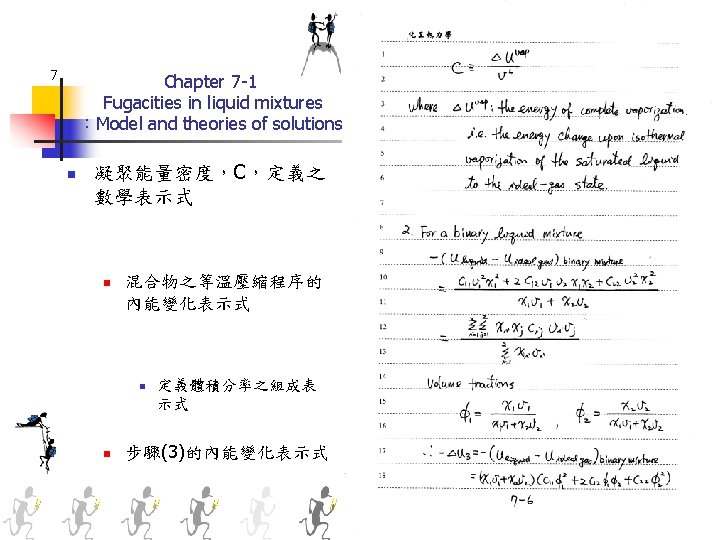 7
Chapter 7-1
Fugacities in liquid mixtures
：Model and theories of solutions
凝聚能量密度，C，定義之
數學表示式
混合物之等溫壓縮程序的
內能變化表示式
定義體積分率之組成表
示式
步驟(3)的內能變化表示式
化工熱力學
1
C ≡ ΔU^vap / v^L
2
3 where ΔU^vap: the energy of complete vaporization.
4 i.e. the energy change upon isothermal
5 vaporization of the saturated liquid
6 to the ideal-gas state.
7
8 2. For a binary liquid mixture
9 -(U_liquid - U_ideal gas) binary mixture
10 = (C₁₁v₁²x₁² + 2C₁₂v₁v₂x₁x₂ + C₂₂v₂²x₂²) / (x₁v₁ + x₂v₂)
11
12 = Σ Σ xᵢxⱼCᵢⱼvᵢvⱼ / Σ xᵢvᵢ
13
14 Volume fractions
15 ϕ₁ = x₁v₁ / (x₁v₁+x₂v₂) , ϕ₂ = x₂v₂ / (x₁v₁+x₂v₂)
16
17 ∴ -ΔU₃ = -(U_liquid - U_ideal gas) binary mixture
18 = (x₁v₁+x₂v₂)(C₁₁ϕ₁² + 2C₁₂ϕ₁ϕ₂ + C₂₂ϕ₂²)
7-6